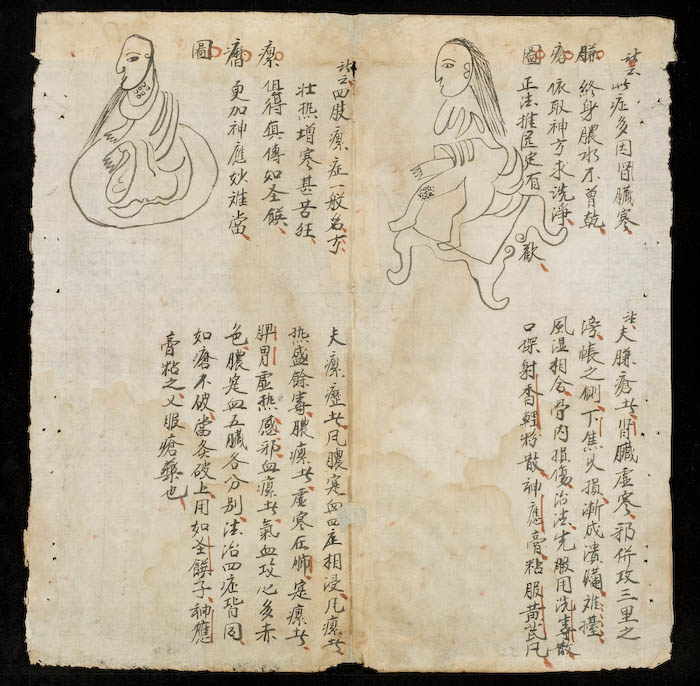 云此症多因腎臟寒
臁 終身膿水不曾乾
瘡 依取神方求洗淨
圖 正法推医定有歡
夫臁瘡者腎臟虛寒邪併攻三里之
滂帳之側下焦火損漸成潰爛难擡
風湿相合骨内損傷治法先服用洗毒散
口搽射香輕粉散神應膏粘服黃芪凡
云四股瘰症一般名方
壮热增寒甚苦狂
瘰 但得真傳如圣餅
癅 更加神應妙难當
圖
夫瘰癧者凡膿定血四症相浸凡瘰者
热盛餘毒膿瘰者虚寒在肺定瘰者
脾胃虚热感邪血瘰者氣血攻心多赤
色膿定血五臟各分别法治四症皆同
如瘡不破當灸破上用如圣餅子神應
膏粘之又服瘡藥也